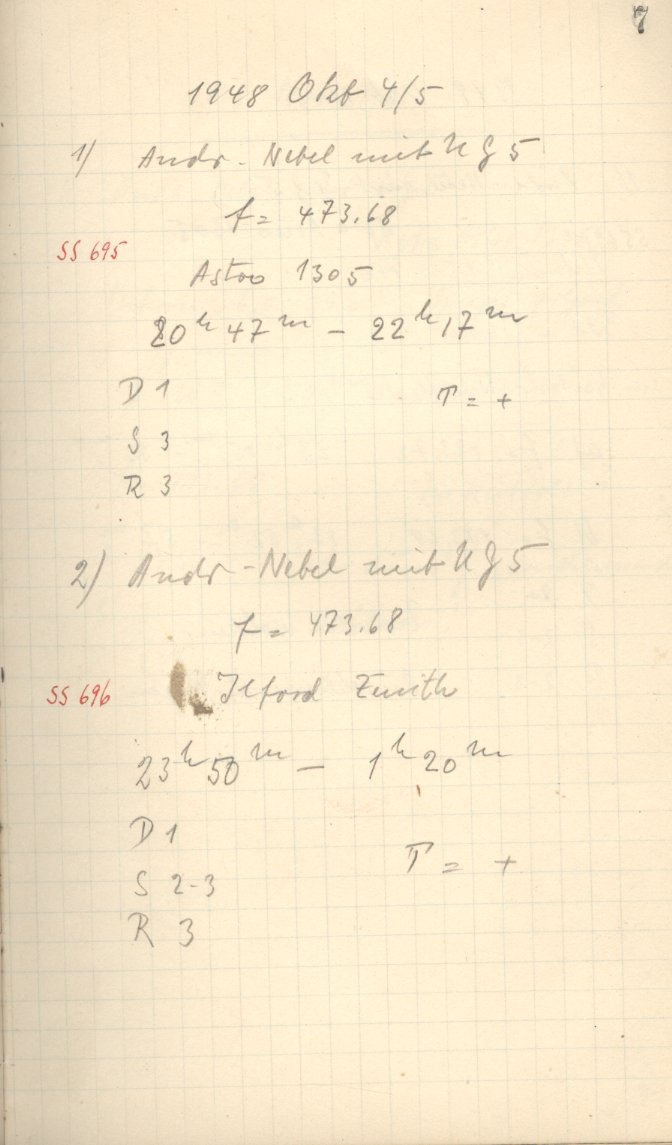 7
1948 Okt 4/5
1) Andr.-Nebel mit UG5
f = 473.68
SS 695
Astro 1305
20h 47m – 22h 17m
D 1 T = +
S 3
R 3
2) Andr-Nebel mit UG5
f = 473.68
SS 696 Ilford Zenith
23h 50m – 1h 20m
D 1
T = +
S 2-3
R 3